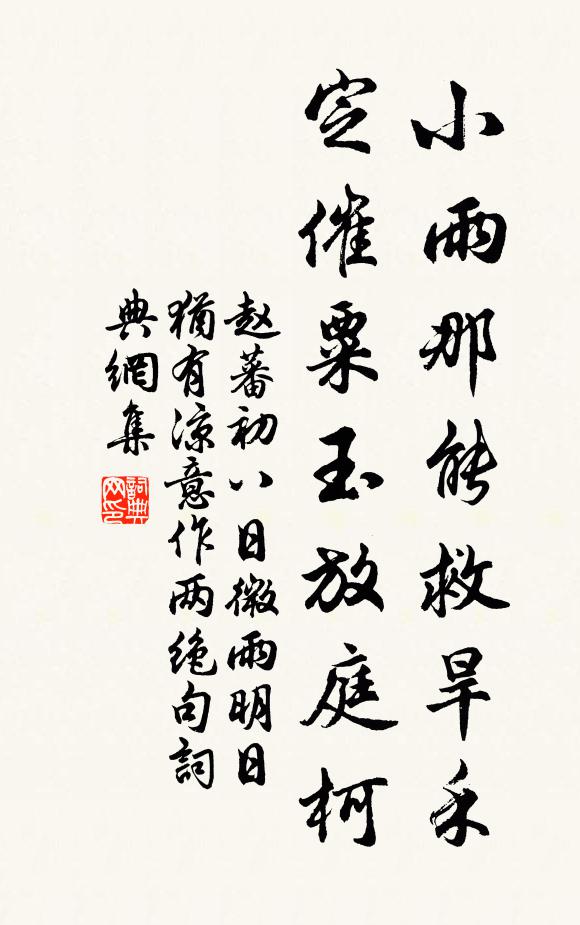 小雨那能救旱禾
定催粟玉放庭柯
赵蕃初八日微雨明日
猶有涼意作两绝句詞
典網集
詞典网印